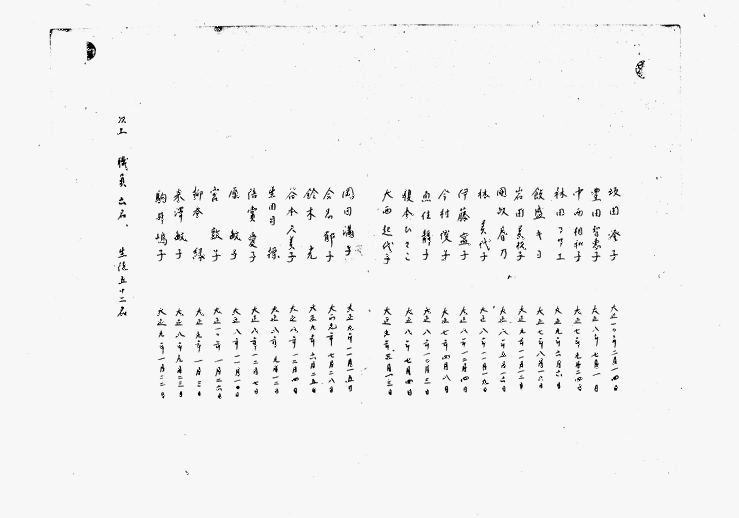 坂田澄子 大正一〇年二月一四日
豊田智恵子 大正八年七月一日
中西相和子 大正七年九月二四日
林田フサエ 大正九年六月六日
飯盛キヨ 大正七年八月一六日
岩田美枝子 大正九年一月一二日
岡政春乃 大正八年五月一六日
林美代子 大正八年一一月一九日
伊藤富子 大正八年一二月四日
今村俊子 大正七年四月八日
魚住静子 大正八年一〇月三一日
榎本ひさこ 大正八年七月四日
大西起代子 大正九年三月一三日
岡田満子 大正九年一一月一五日
合志郁子 大正九年七月二八日
鈴木光 大正九年六月二五日
谷本久美子 大正八年一二月四日
生田目操 大正八年九月一二日
信實愛子 大正八年一二月七日
原敏子 大正八年一一月一〇日
宮敦子 大正一〇年一月二六日
柳本緑 大正九年一月三一日
米澤敏子 大正八年九月二三日
駒井鳩子 大正九年一月二二日
以上 職員六名、生徒五十二名